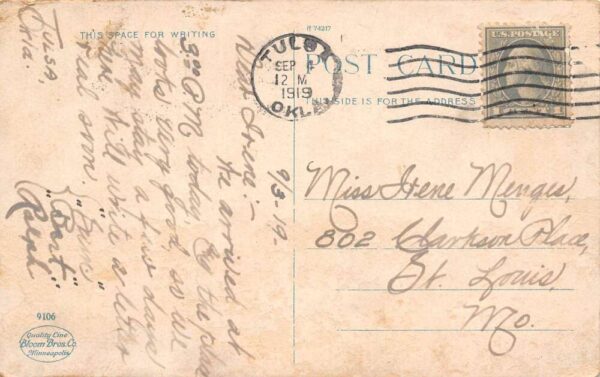 THIS SPACE FOR WRITING
R 74217
POST CARD
THIS SIDE IS FOR THE ADDRESS
TULSA
SEP 4
12 M
1919
OKLA
U.S. POSTAGE
Tulsa,
Okla.
9/3-19-
Dear Irene:-
We arrived at
3:00 PM today.
looks very good, so we
may stay a few days
will write a letter
real soon.
"Bart"
Ralph
Miss Irene Menges,
802 Clarkson Place,
St. Louis,
Mo.
9106
Quality Line
Bloom Bros. Co.
Minneapolis